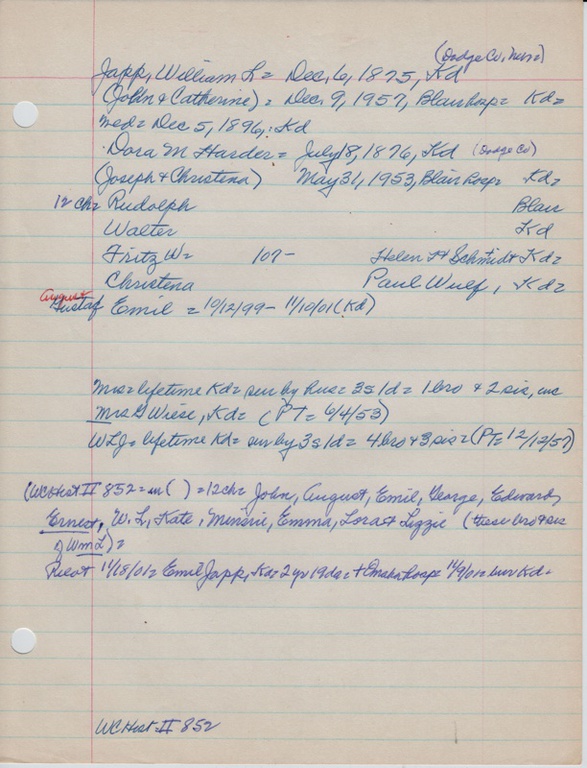 (Dodge Co, Nebr)
Japp, William L = Dec, 6, 1875, Kd
(John & Catherine) = Dec, 9, 1957, Blair hosp = Kd =
Med = Dec 5, 1896, Kd
Dora M Harder = July 18, 1876, Kd (Dodge Co)
(Joseph & Christena) May 31, 1953, Blair hosp Kd =
12 ch = Rudolph Blair
Walter Kd
Fritz W = 107 - Helen Schmidt Kd =
Christena Paul Wulf, Kd =
August
Gustaf Emil = 10/12/99 - 11/10/01 (Kd)
Mrs = lifetime Kd = sur by hus = 3s 1d = 1 bro & 2 sis, inc
Mrs G Wiese, Kd = (PT = 6/4/53)
WLJ = lifetime Kd = sur by 3s 1d = 4 bro & 3 sis = (PT = 12/12/57)
(WC Hist II 852 = m ( ) = 12 ch = John, August, Emil, George, Edward,
Ernest, W. L, Kate, Minnie, Emma, Lora & Lizzie (these bro & sis
of Wm L) =
Pilot 11/18/01 = Emil Japp, Kd = 2 yr 19 da = + Omaha hosp 11/9/01 = bur Kd =
WC Hist II 852